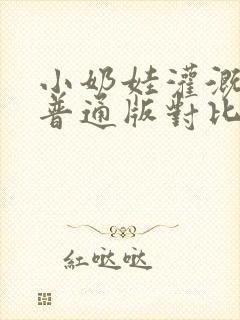 小奶娃灌溉
普通版對比
紅哒哒